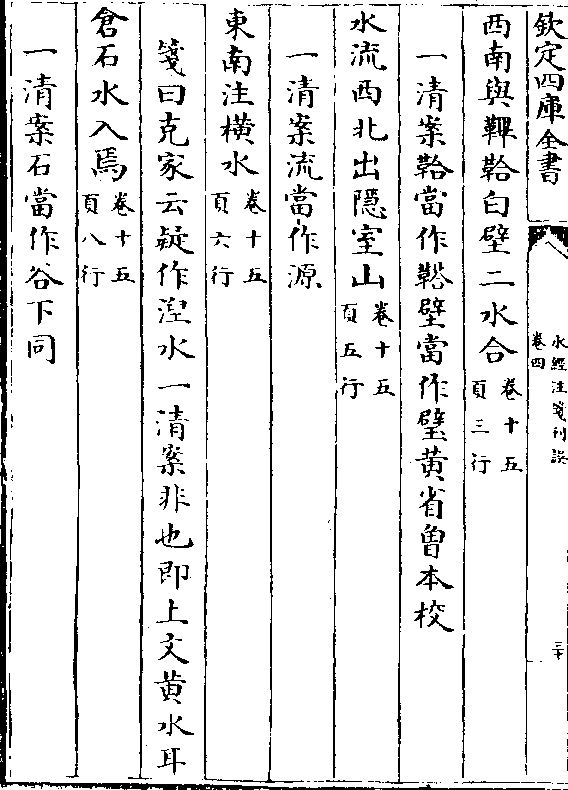 欽定四庫全書
水經注箋刊誤
卷四
三十
西南與鞞鞈白壁二水合卷十五
頁三行
一清案鞈當作壁當作璧黄省曾本校
水流西北出隱室山卷十五
頁五行
一清案流當作源
東南注橫水卷十五
頁六行
箋曰克家云疑作湼水一清案非也即上文黄水耳
倉石水入焉卷十五
頁八行
一清案石當作谷下同